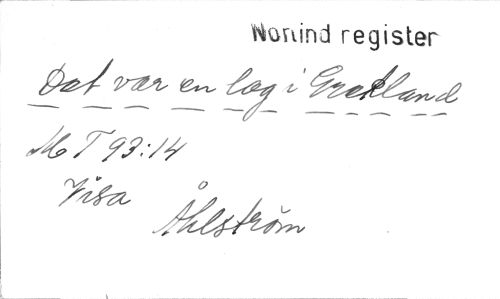 Nonind register
Det var en lag i Grekland
M T 93:14
Visa
Åhlström